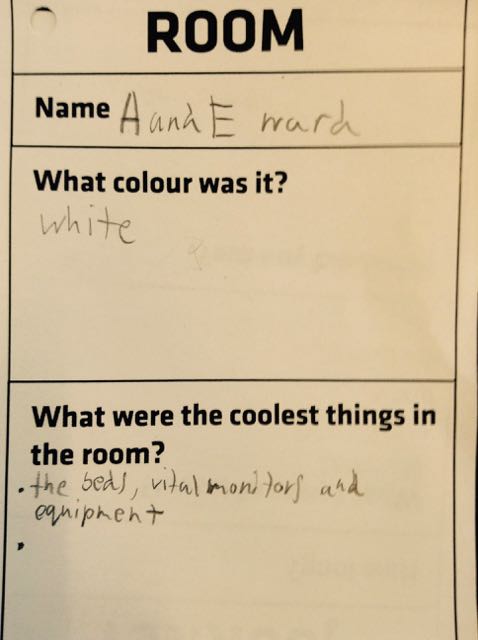 ROOM
Name A and E ward
What colour was it?
white
What were the coolest things in
the room?
• the beds, vital monitors and
equipment
•